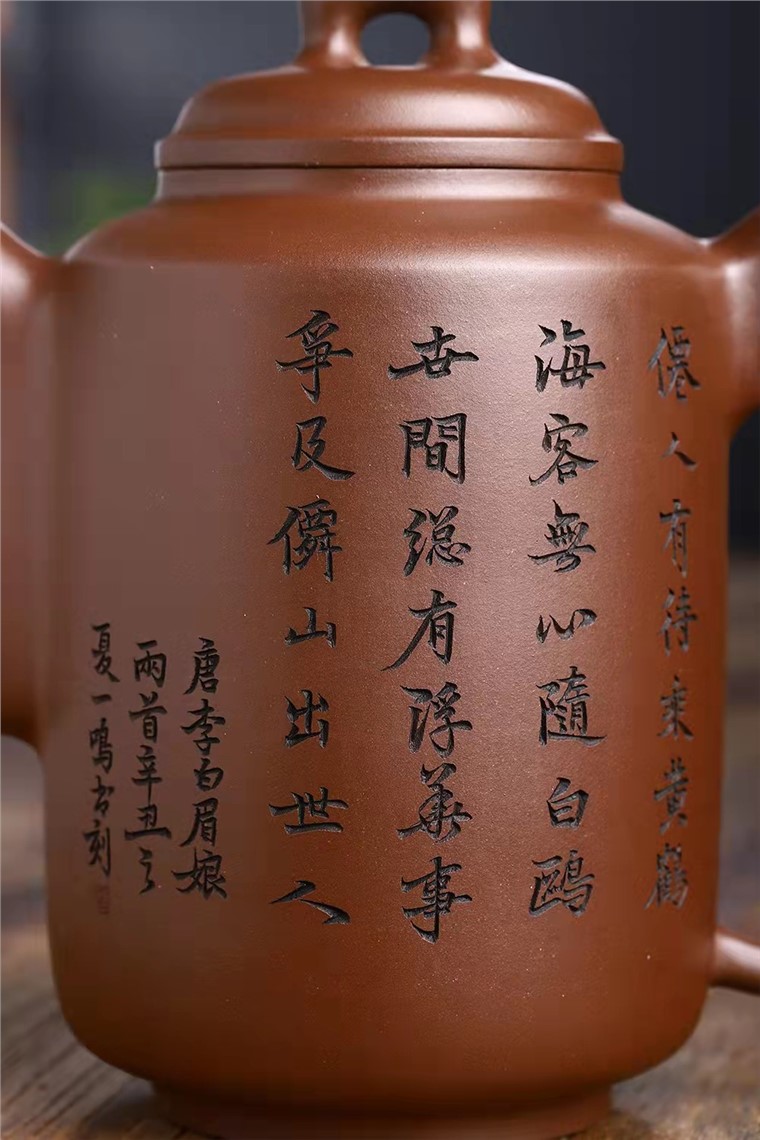 僊人有待乘黄鶴
海客無心隨白鷗
世間總有浮華事
爭及僊山出世人
唐李白眉娘
兩首辛丑之
夏一鳴書刻